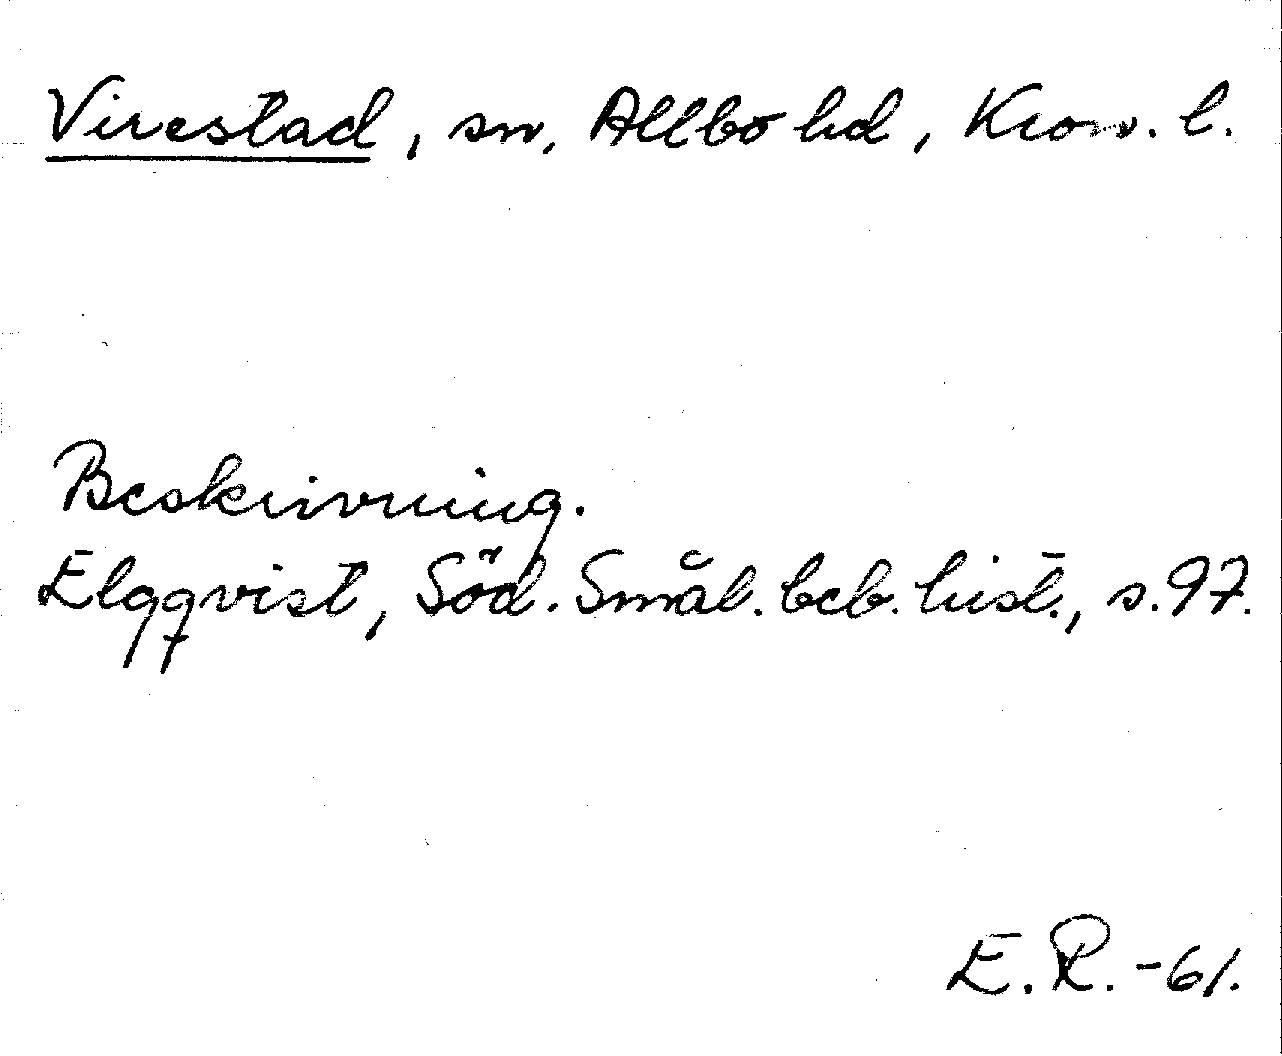 Virestad, sn, Allbo hd, Kron. l.
Beskrivning.
Elgqvist, Söd. Smål. beb. hist., s. 97.
E. R. -61.